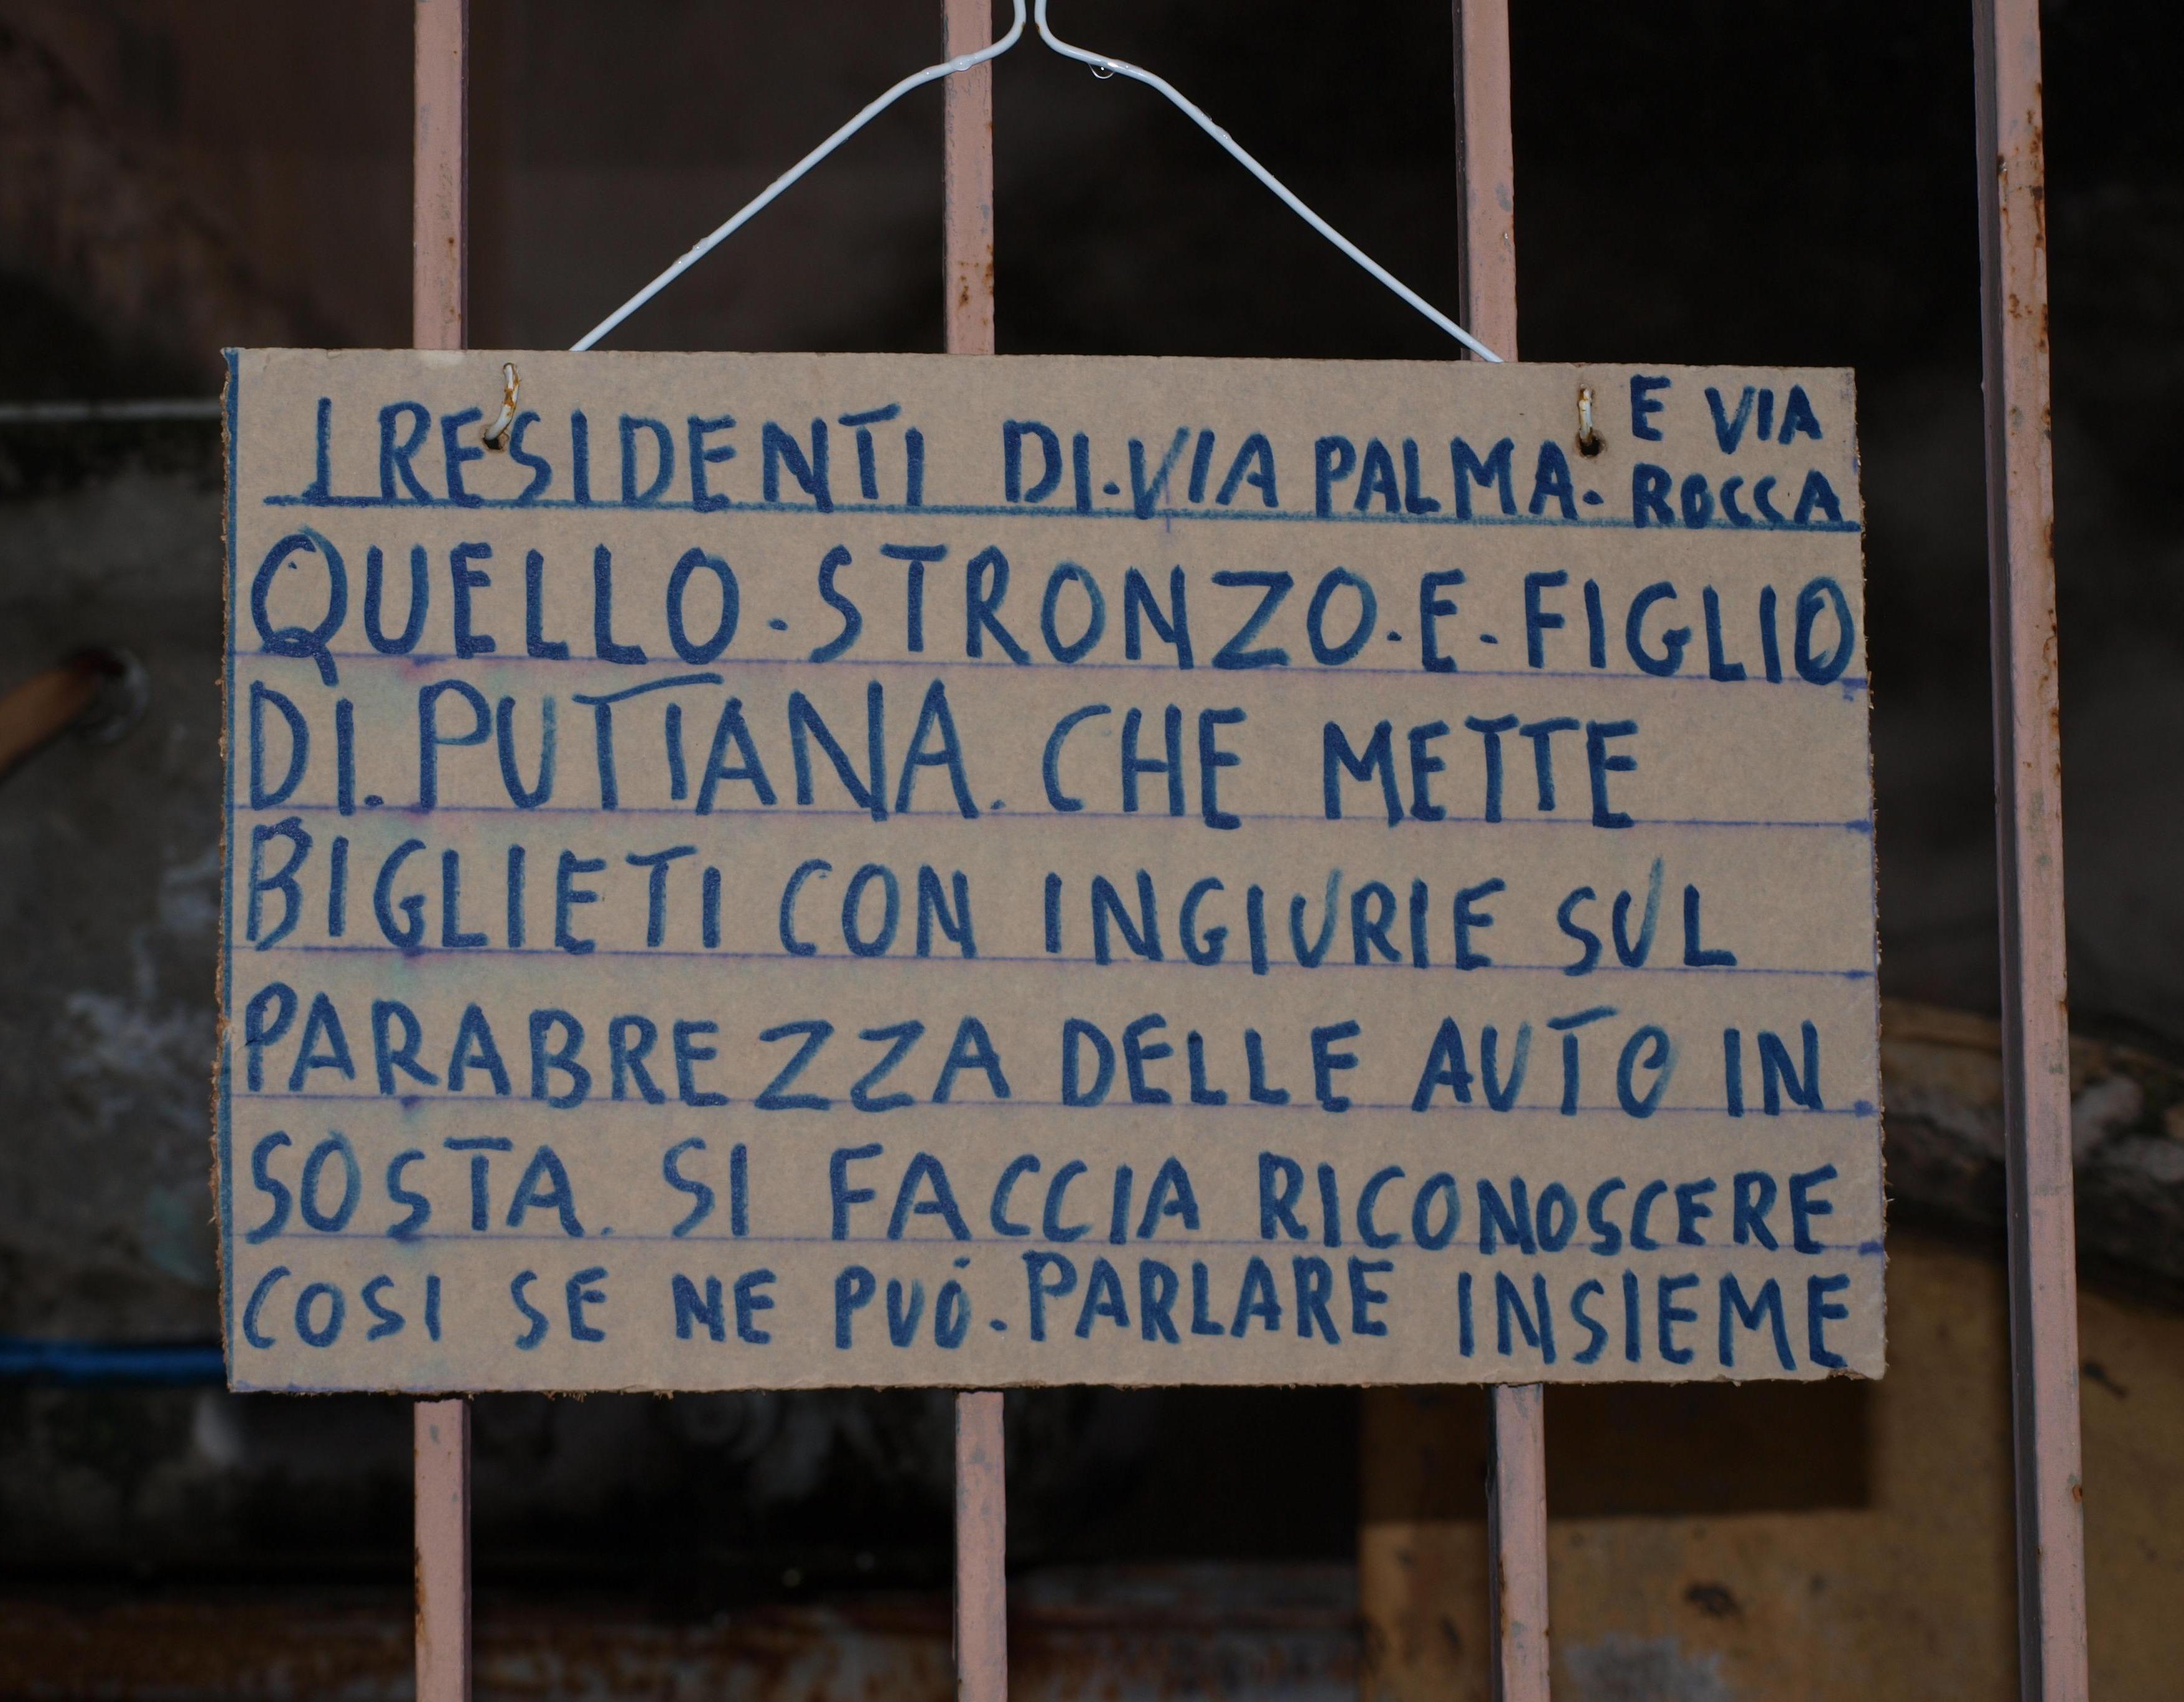 I RESIDENTI DI.VIA PALMA. E VIA ROCCA
QUELLO.STRONZO.E.FIGLIO
DI.PUTTANA.CHE METTE
BIGLIETI CON INGIURIE SUL
PARABREZZA DELLE AUTO IN
SOSTA. SI FACCIA RICONOSCERE
COSI SE NE PUÓ.PARLARE INSIEME